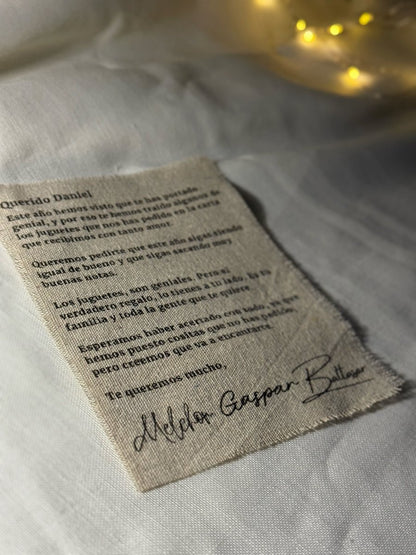 Querido Daniel
Este año hemos visto que te has portado
genial, y por eso te hemos traído algunos de
los juguetes que nos has pedido en la carta
que recibimos con tanto amor.
Queremos pedirte que este año sigas siendo
igual de bueno y que sigas sacando muy
buenas notas.
Los juguetes, son geniales. Pero el
verdadero regalo, lo tienes a tu lado. Es tu
familia y toda la gente que te quiere.
Esperamos haber acertado con todo, ya que
hemos puesto cositas que no has pedido,
pero creemos que va a encantarte.
Te queremos mucho,
Melchor Gaspar Baltasar